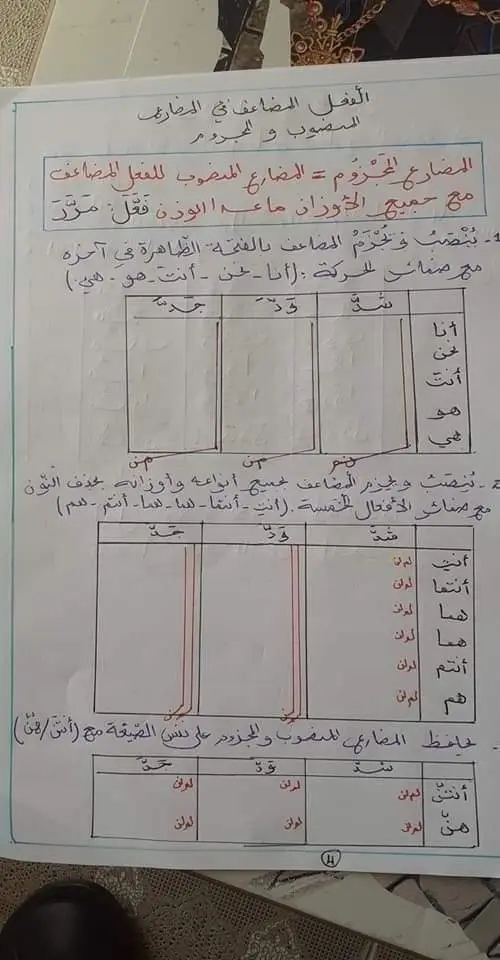 الفعل المضاعف في المضارع
المنصوب و المجزوم
المضارع المَجْزُوم = المضارع المنصوب للفعل المضاعف
مع جميع الأوزان ماعدا الوزن فَعَّلَ: مَرَّرَ
1- يُنْصَبُ و يُجْزَمُ المضاعف بالفتحة الظّاهرة في آخره
مع ضمائر الحركة: (أنا - نحن - أنتَ - هو - هي)
شدَّ ودَّ جدَّ
أنا
نحن
أنتَ
هو
هي
2- يُنصَبُ ويجزم المضاعف بجميع أنواعه وأوزانه بحذف النّون
مع ضمائر الأفعال الخمسة. (أنتِ - أنتما - هما - هما - أنتم - هم)
شدَّ ودَّ جدَّ
أنتِ لم/لن
أنتما لم/لن
هما لم/لن
هما لم/لن
أنتم لم/لن
هم لم/لن
- يحافظ المضارع المنصوب والمجزوم على نفس الصّيغة مع (أنتنّ/هنّ)
شدَّ ودَّ جدَّ
أنتنّ لم/لن لم/لن لم/لن
هنّ لم/لن لم/لن لم/لن